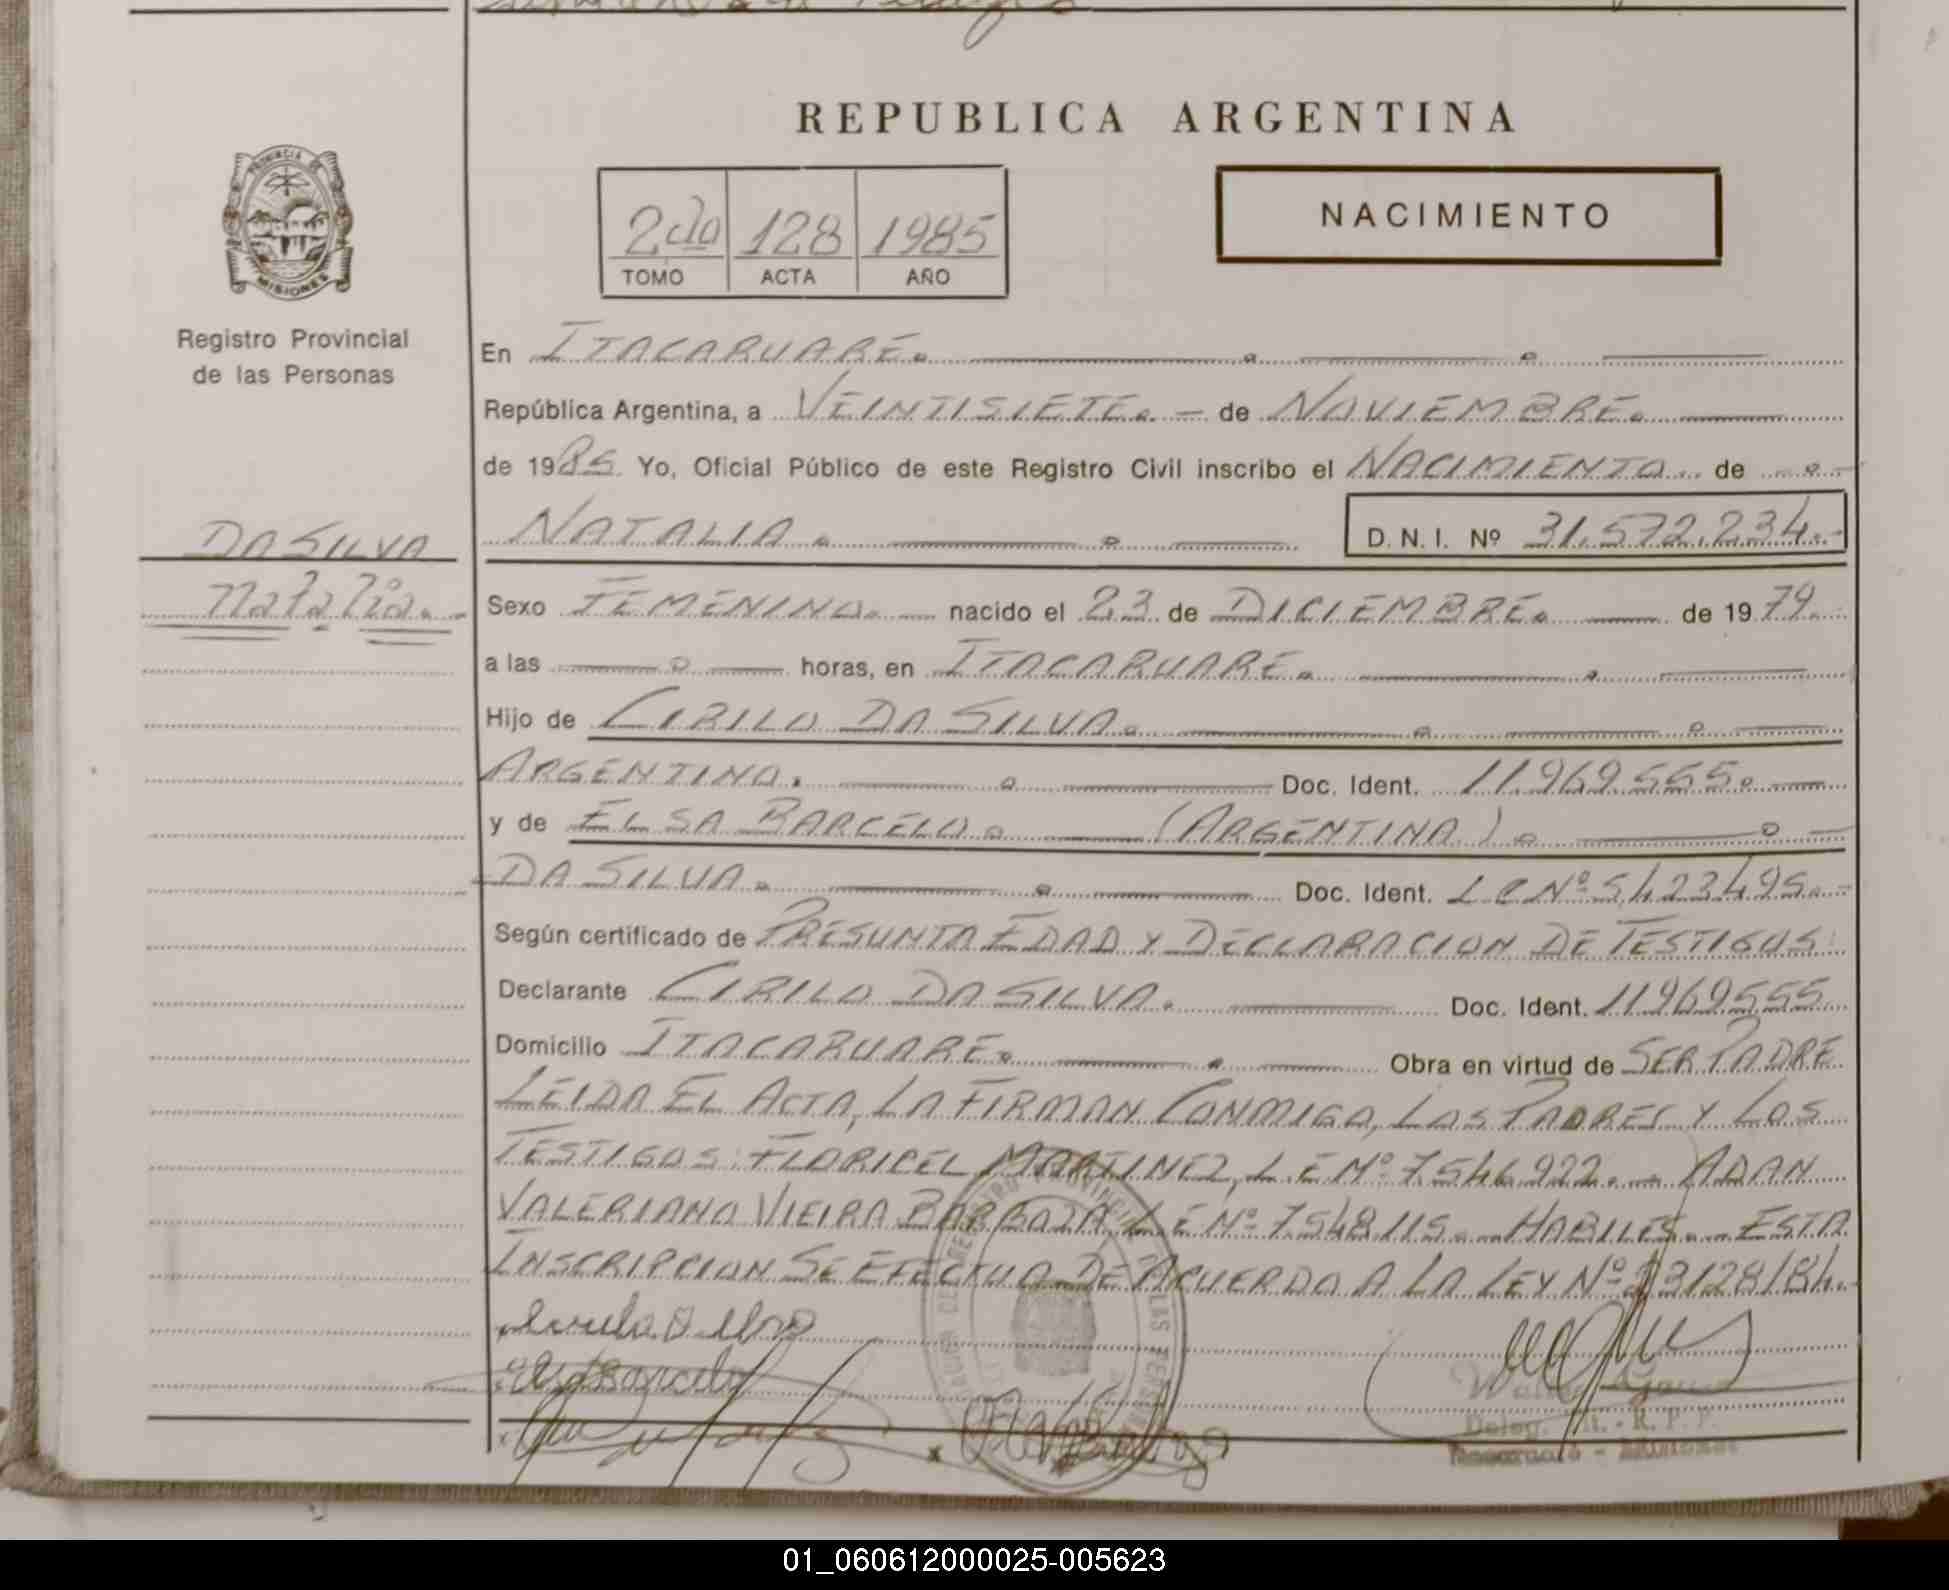 REPUBLICA ARGENTINA
PROVINCIA DE
MISIONES
2do 128 1985
TOMO ACTA AÑO
NACIMIENTO
Registro Provincial
de las Personas
En ITACARUARE.
República Argentina, a VEINTISIETE. – de NOVIEMBRE.
de 1985 Yo, Oficial Público de este Registro Civil inscribo el NACIMIENTO de
DA SILVA
Natalia.
NATALIA. D.N.I. Nº 31.572.234.-
Sexo FEMENINO. nacido el 23 de DICIEMBRE. de 1979.
a las horas, en ITACARUARE.
Hijo de CIRILO DA SILVA.
ARGENTINO. Doc. Ident. 11.969.555.
y de ELSA BARCELO. (ARGENTINA).
DA SILVA. Doc. Ident. L C Nº 5.423.495.-
Según certificado de PRESUNTA EDAD Y DECLARACION DE TESTIGOS.
Declarante CIRILO DA SILVA. Doc. Ident. 11969555
Domicilio ITACARUARE. Obra en virtud de SER PADRE
LEIDA EL ACTA, LA FIRMAN CONMIGO, LOS PADRES Y LOS
TESTIGOS: FLORICEL MARTINEZ, L.E Nº 7.546.922. ADAN
VALERIANO VIEIRA BARBOZA, L E Nº 7.548.115. HABILES. ESTA
INSCRIPCION SE EFECTUA DE ACUERDO A LA LEY Nº 23128/84.
Elsa Barcelo
Deleg. Tit. - R. P. P.
01_060612000025-005623